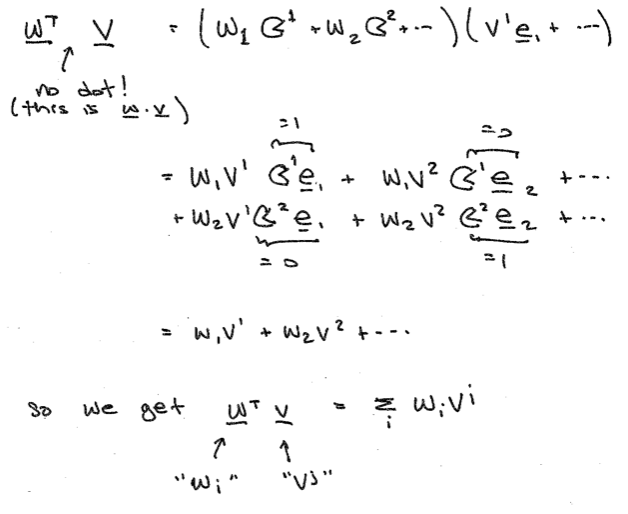 w^T v = (w_1 β^1 + w_2 β^2 + ...)(v^1 e_1 + ...)
no dot!
(this is w · v)
=1 =0
= w_1 v^1 β^1 e_1 + w_1 v^2 β^1 e_2 + ...
+ w_2 v^1 β^2 e_1 + w_2 v^2 β^2 e_2 + ...
=0 =1
= w_1 v^1 + w_2 v^2 + ...
so we get w^T v = Σ_i w_i v^i
"w_i" "v^j"